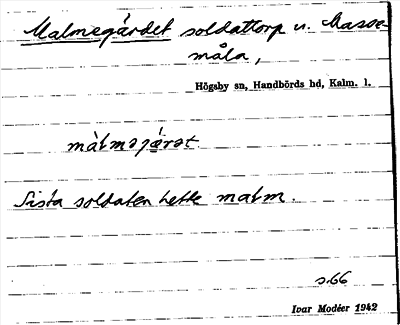 Malmegårdet soldattorp u. Masse-
måla,
Högsby sn, Handbörds hd, Kalm. l.
màlməjǽrət
Sista soldaten hette Malm.
s.66
Ivar Modéer 1942